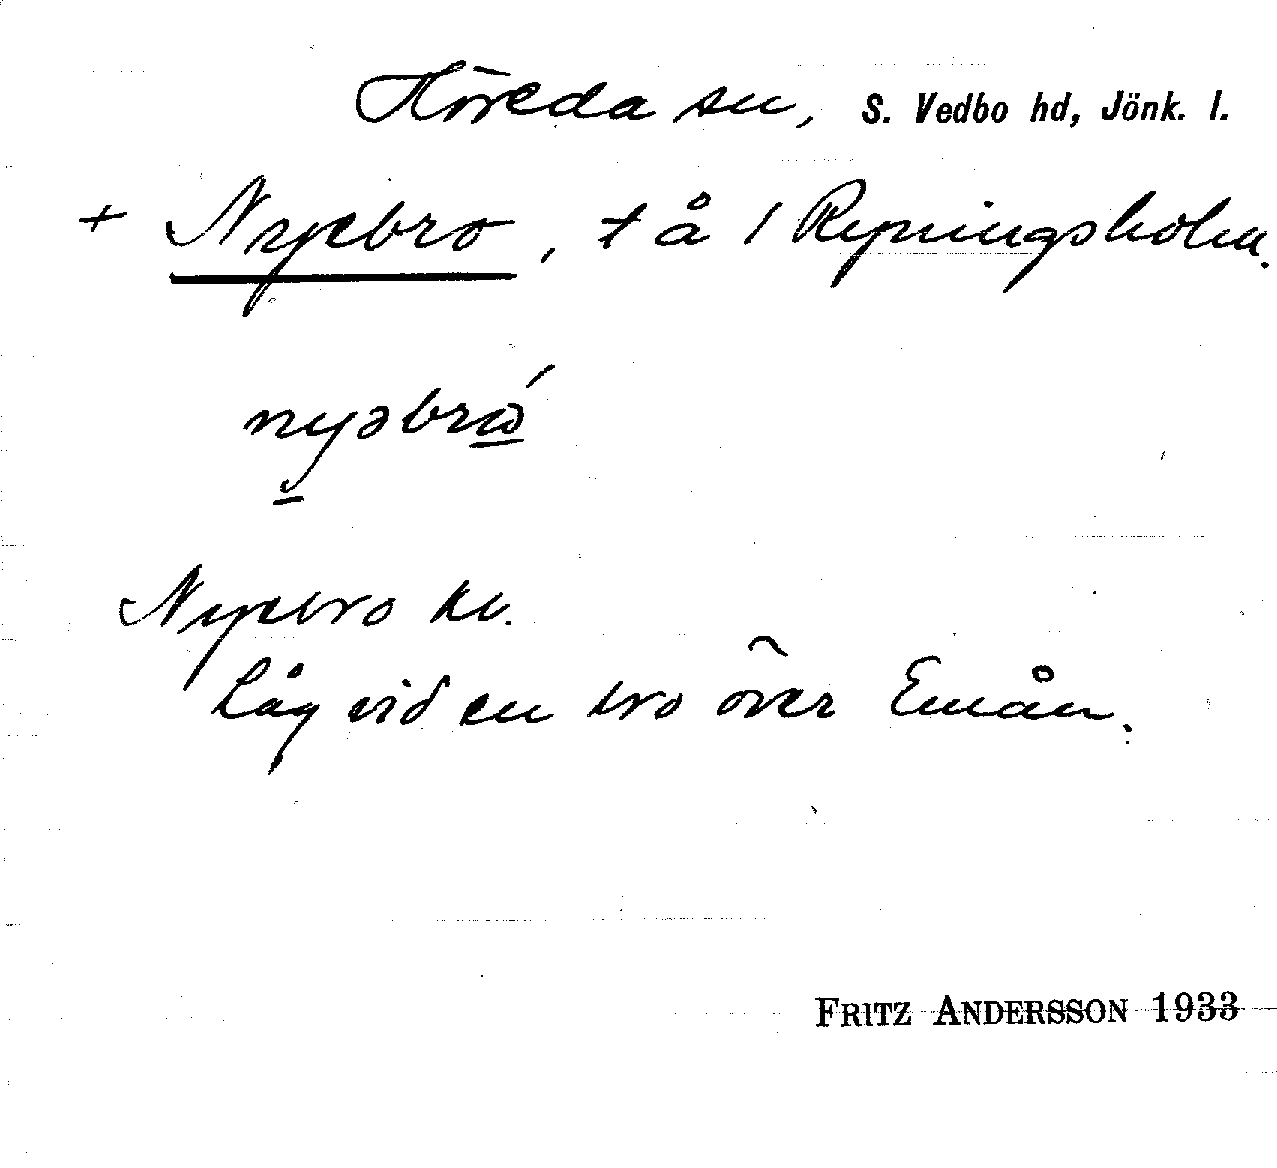 Höreda sn, S. Vedbo hd, Jönk. l.
+ Nyebro, t å / Ryningsholm.
nyəbrώ
Nyebro kv.
Låg vid en bro över Emån.
FRITZ ANDERSSON 1933